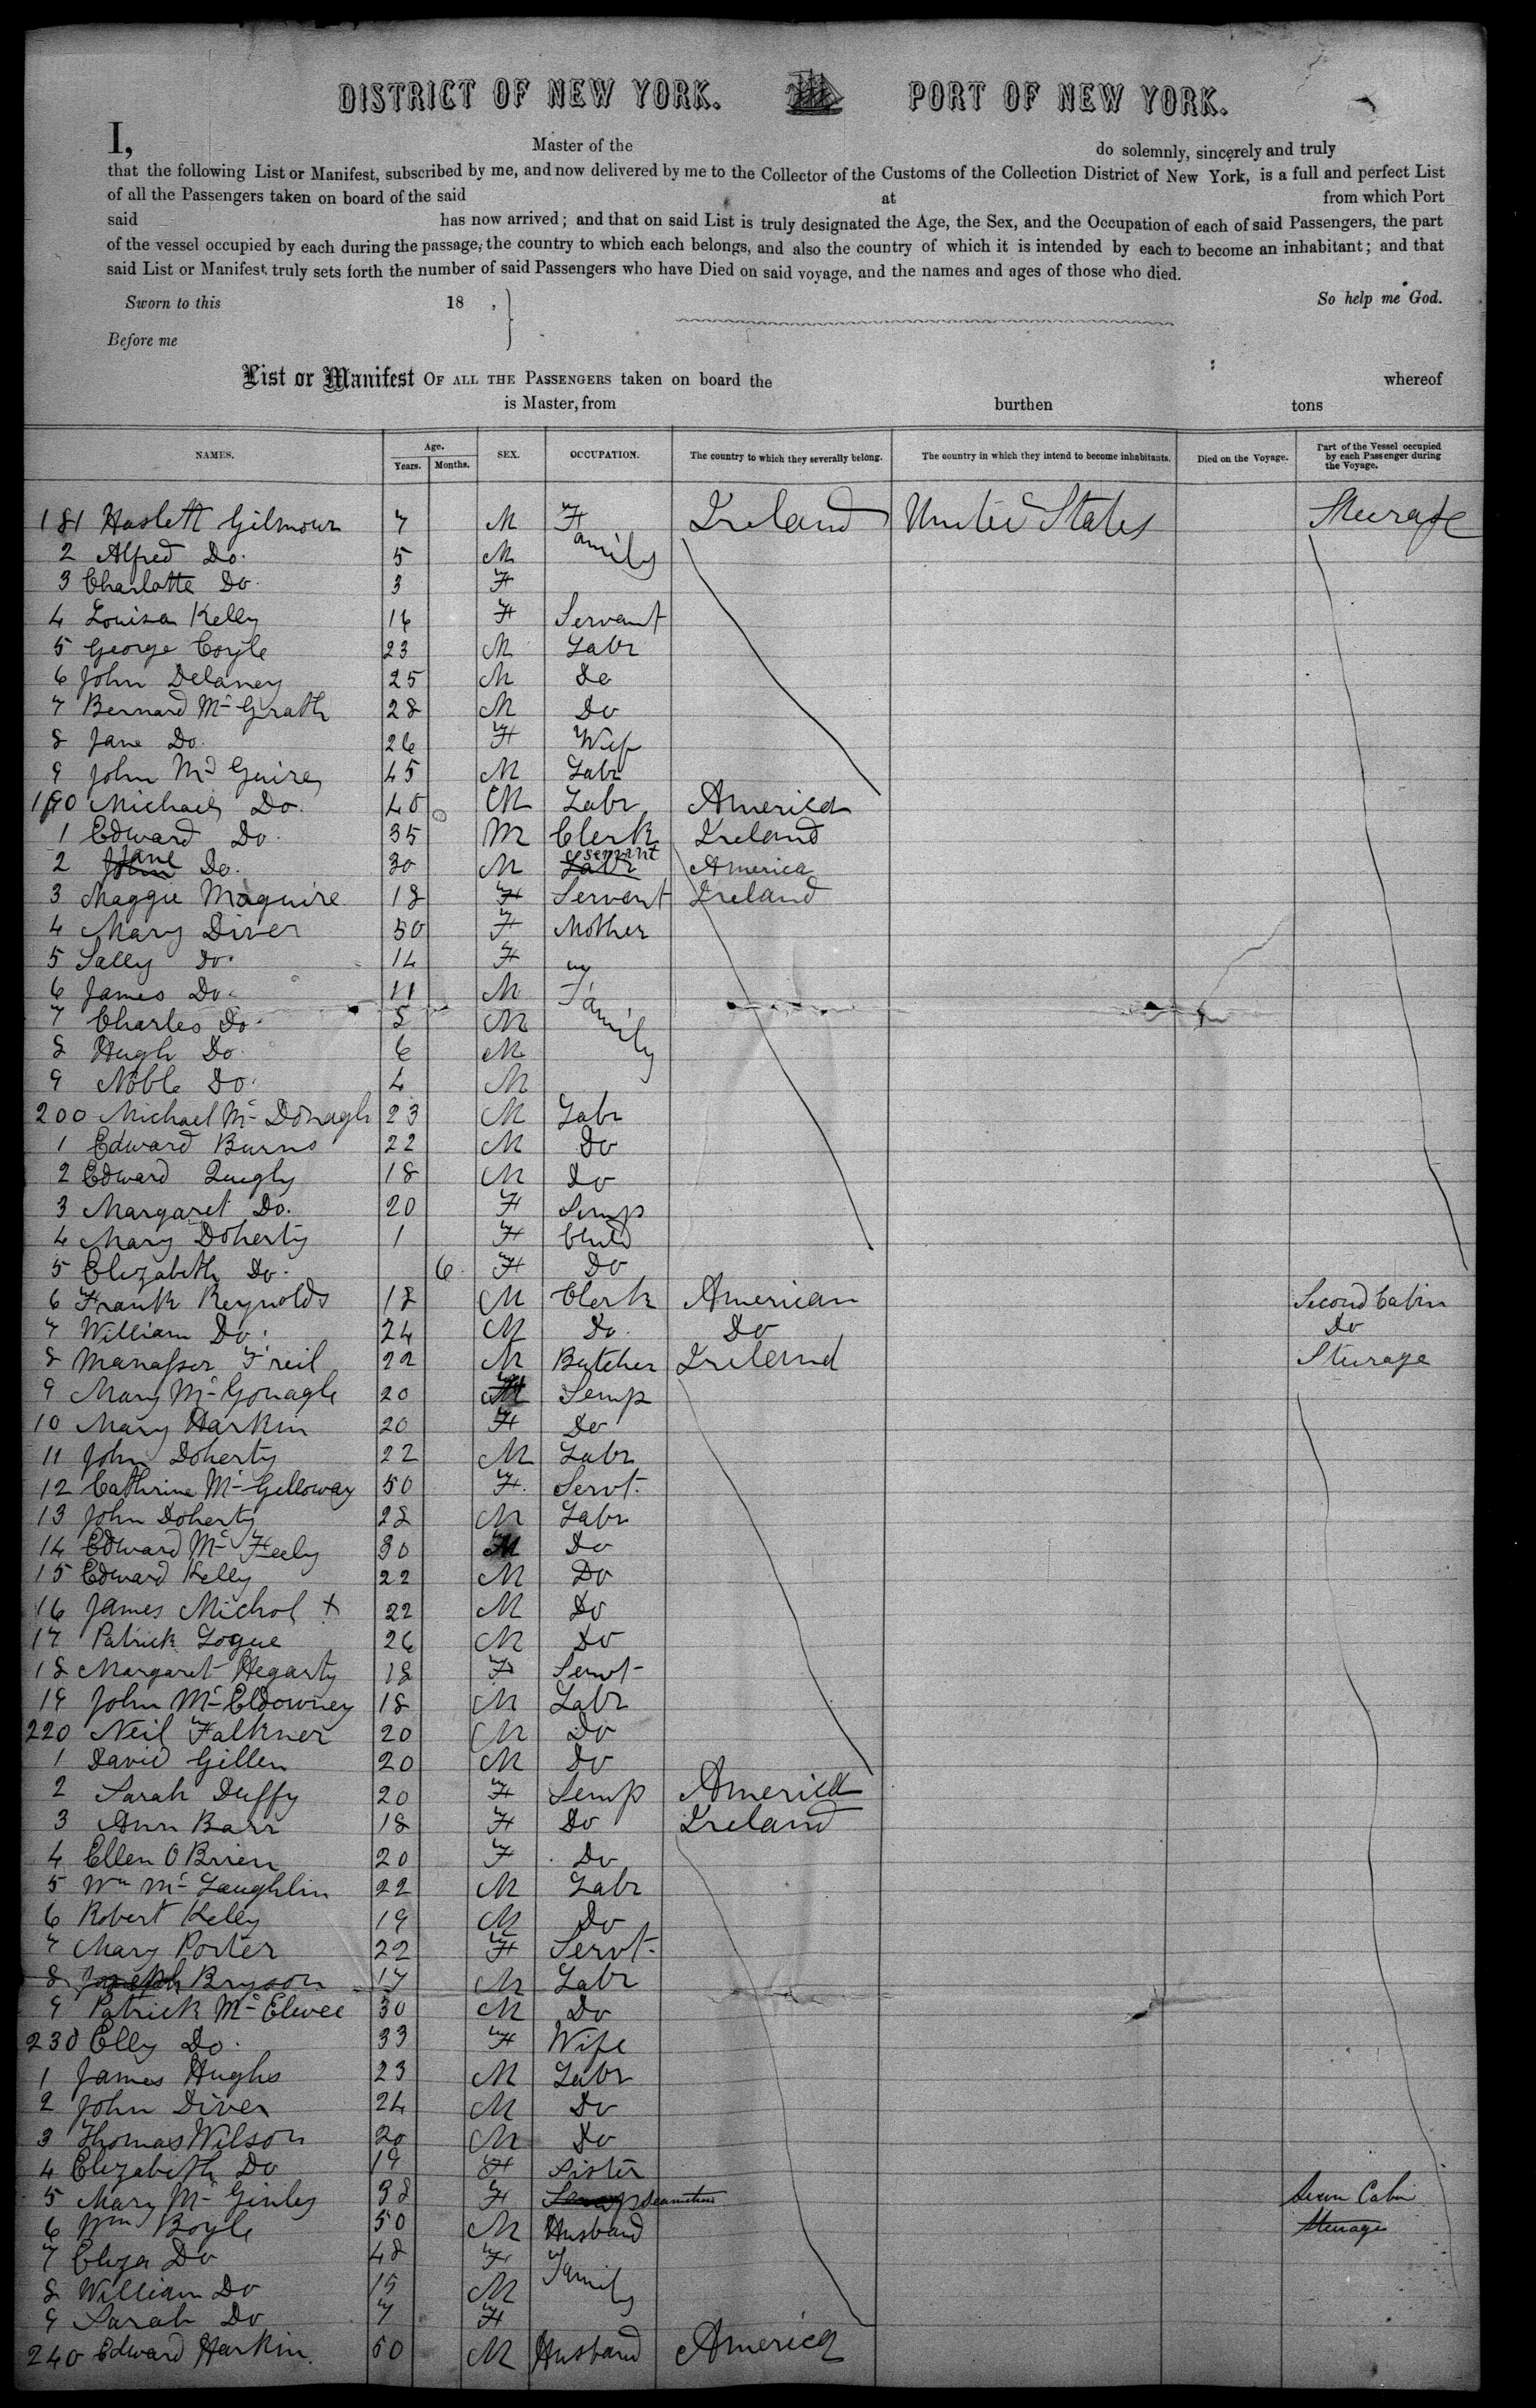 DISTRICT OF NEW YORK. PORT OF NEW YORK.
I, Master of the do solemnly, sincerely and truly
that the following List or Manifest, subscribed by me, and now delivered by me to the Collector of the Customs of the Collection District of New York, is a full and perfect List
of all the Passengers taken on board of the said at from which Port
said has now arrived; and that on said List is truly designated the Age, the Sex, and the Occupation of each of said Passengers, the part
of the vessel occupied by each during the passage, the country to which each belongs, and also the country of which it is intended by each to become an inhabitant; and that
said List or Manifest truly sets forth the number of said Passengers who have Died on said voyage, and the names and ages of those who died.
Sworn to this 18 , So help me God.
Before me
List or Manifest OF ALL THE PASSENGERS taken on board the whereof
is Master, from burthen tons
NAMES. Age. Years. Months. SEX. OCCUPATION. The country to which they severally belong. The country in which they intend to become inhabitants. Died on the Voyage. Part of the Vessel occupied by each Passenger during the Voyage.
181 Haslett Gilmour 7 M Family Ireland United States Steerage
2 Alfred Do. 5 M
3 Charlotte Do. 3 F
4 Louisa Kelly 16 F Servant
5 George Coyle 23 M Labr
6 John Delaney 25 M Do
7 Bernard Mc Grath 28 M Do
8 Jane Do. 26 F Wife
9 John Mc Guire 45 M Labr
190 Michael Do. 40 M Labr America
1 Edward Do. 35 M Clerk Ireland
2 Jane Do. 30 M servant America
3 Maggie Maguire 18 F Servent Ireland
4 Mary Diver 50 F Mother
5 Sally Do. 14 F
6 James Do. 11 M Family
7 Charles Do. 8 M
8 Hugh Do. 6 M
9 Noble Do. 4 M
200 Michael Mc Donagh 23 M Labr
1 Edward Burns 22 M Do
2 Edward Quigly 18 M Do
3 Margaret Do. 20 F Semp
4 Mary Doherty 1 F Child
5 Elizabeth Do. 6 F Do
6 Frank Reynolds 18 M Clerk American Second Cabin
7 William Do. 24 M Do. Do Do
8 Manasser Freil 22 M Butcher Ireland Steerage
9 Mary Mc Gonagle 20 F Semp
10 Mary Harkin 20 F Do
11 John Doherty 22 M Labr
12 Cathrine Mc Gelloway 50 F. Servt.
13 John Doherty 28 M Labr
14 Edward Mc Feely 30 M Do
15 Edward Kelly 22 M Do
16 James Michol x 22 M Do
17 Patrick Logue 26 M Do
18 Margaret Hegarty 18 F Servt
19 John Mc Eldowney 18 M Labr
220 Neil Falkner 20 M Do
1 David Gillen 20 M Do
2 Sarah Duffy 20 F Semp America
3 Ann Barr 18 F Do Ireland
4 Ellen O Brien 20 F Do
5 Wm Mc Laughlin 22 M Labr
6 Robert Kelly 19 M Do
7 Mary Porter 22 F Servt.
8 Joseph Bryson 17 M Labr
9 Patrick Mc Elwee 30 M Do
230 Elly Do. 33 F Wife
1 James Hughs 23 M Labr
2 John Diver 24 M Do
3 Thomas Wilson 20 M Do
4 Elizabeth Do 19 F Sister
5 Mary Mc Ginley 38 F Semp Cabin
6 Wm Boyle 50 M Husband Steerage
7 Eliza Do 48 F Family
8 William Do 15 M
9 Sarah Do 7 F
240 Edward Harkin. 50 M Husband America